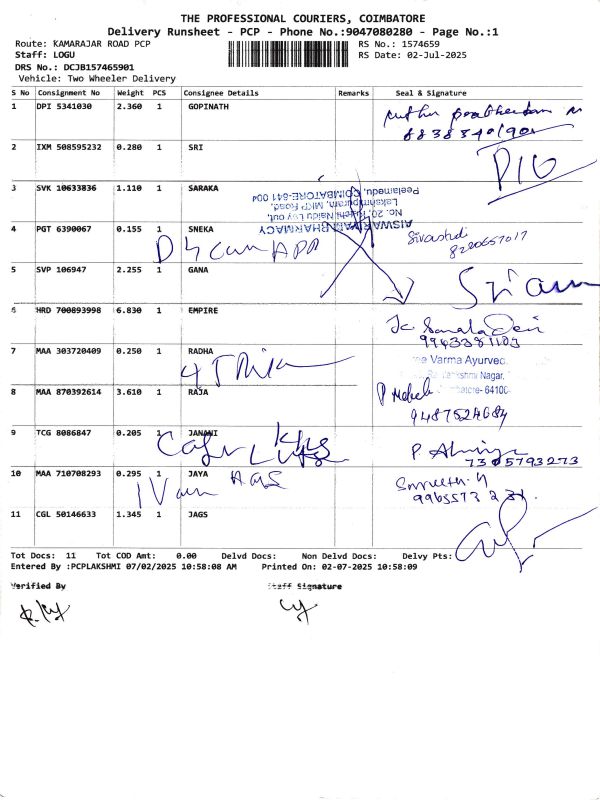 THE PROFESSIONAL COURIERS, COIMBATORE
Delivery Runsheet - PCP - Phone No.:9047080280 - Page No.:1
Route: KAMARAJAR ROAD PCP RS No.: 1574659
Staff: LOGU RS Date: 02-Jul-2025
DRS No.: DCJB157465901
Vehicle: Two Wheeler Delivery
S No Consignment No Weight PCS Consignee Details Remarks Seal & Signature
1 DPI 5341030 2.360 1 GOPINATH
2 IXM 508595232 0.280 1 SRI
3 SVK 10633836 1.110 1 SARAKA
No. 20, Naidu Lay out,
Lakshmipuram, MKP Road,
Peelamedu, COIMBATORE-641 004
4 PGT 6390067 0.155 1 SNEKA
8220657017
5 SVP 106947 2.255 1 GANA
Sriam
6 HRD 700893998 6.830 1 EMPIRE
9963381103
7 MAA 303720409 0.250 1 RADHA
Varma Ayurved
Nagar,
8 MAA 870392614 3.610 1 RAJA
9487524684
9 TCG 8086847 0.205 1 JANANI
7305793273
10 MAA 710708293 0.295 1 JAYA
11 CGL 50146633 1.345 1 JAGS
Tot Docs: 11 Tot COD Amt: 0.00 Delvd Docs: Non Delvd Docs: Delvy Pts:
Entered By :PCPLAKSHMI 07/02/2025 10:58:08 AM Printed On: 02-07-2025 10:58:09
Verified By Staff Signature